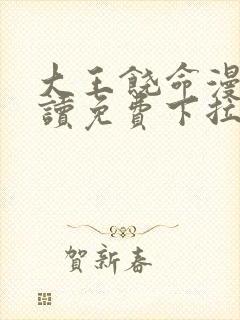 大王饶命漫
讀免費下拉
賀新春